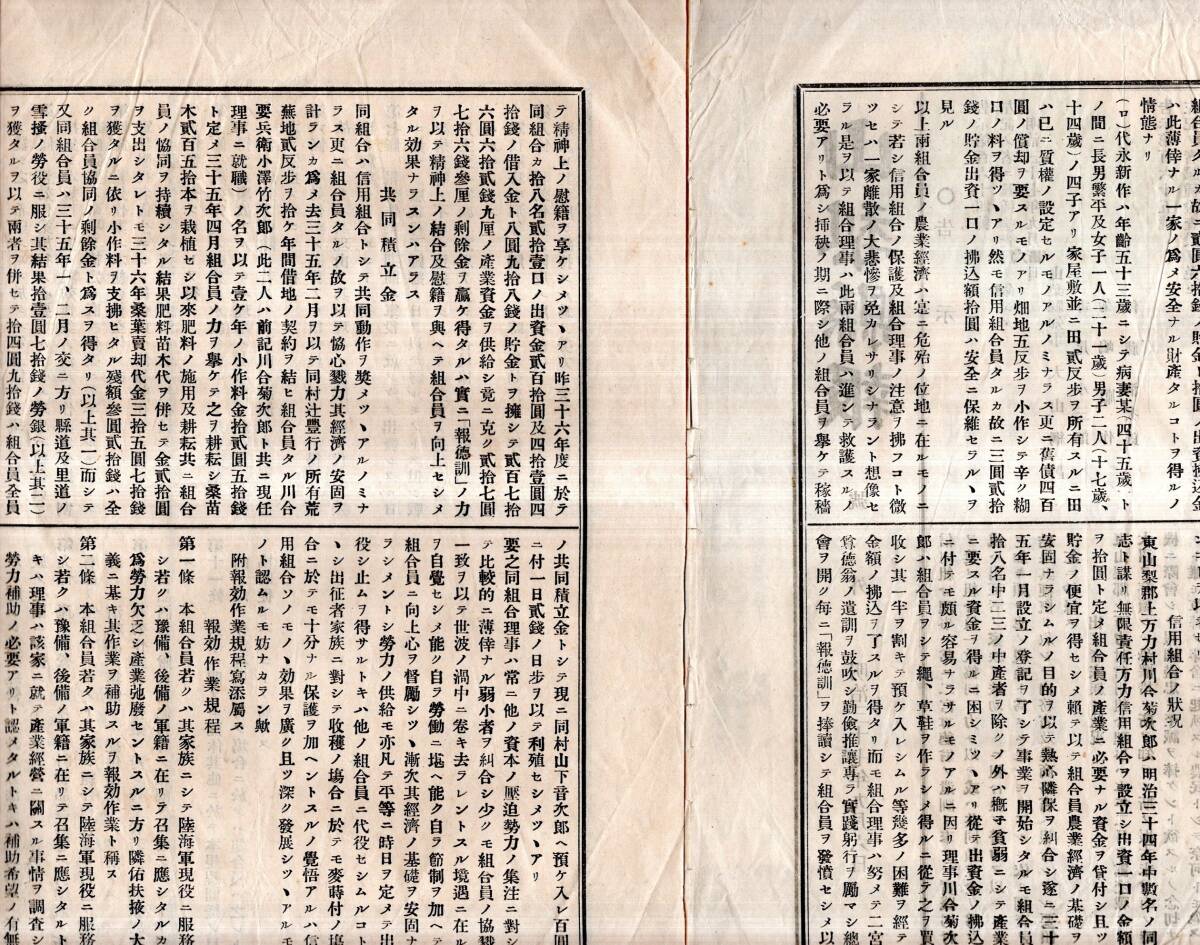 ハ此薄倖ナル一家ノ爲メ安全ナル財產タルコトヲ得ルノ
情態ナリ
(ロ)代永新作ハ年齡五十三歲ニシテ病妻某(四十五歲)ト
ノ間ニ長男繁平及女子一人(二十一歲)男子二人(十七歲、
十四歲)ノ四子アリ家屋敷並ニ田貳反步ヲ所有スルニ田
ハ已ニ質權ノ設定セルモノアルノミナラス更ニ舊債四百
圓ノ償却ヲ要スルモノアリ畑地五反步ヲ小作シテ辛ク糊
口ノ料ヲ得ツヽアリ然モ信用組合員タルカ故ニ三圓貳拾
錢ノ貯金出資一口ノ拂込額拾圓ハ安全ニ保維セラルヽヲ
見ル
以上兩組合員ノ農業經濟ハ寔ニ危殆ノ位地ニ在ルモノニ
シテ若シ信用組合ノ保護及組合理事ノ注意ヲ拂フコト微
ツセハ一家離散ノ大悲慘ヲ免カレサリシナラント想像セ
ラル是ヲ以テ組合理事ハ此兩組合員ハ進ンテ救護スルノ
必要アリト爲シ揷秧ノ期ニ際シ他ノ組合員ヲ擧ケテ稼穡
二、信用組合ノ狀況
東山梨郡上万力村川合菊次郎ハ明治三十四年中數名ノ同
志ト謀リ無限責任万力信用組合ヲ設立シ出資一口ノ金額
ヲ拾圓ト定メ組合員ノ產業ニ必要ナル資金ヲ貸付シ且ツ
貯金ノ便宜ヲ得セシメ賴テ以テ組合員農業經濟ノ基礎ヲ
安固ナラシムルノ目的ヲ以テ熱心隣保ヲ糾合シ遂ニ三十
五年一月設立ノ登記ヲ了シテ事業ヲ開始シタルモ組合員
拾八名中二三ノ中產者ヲ除クノ外ハ槪子貧弱ニシテ產業
ニ要スル資金ヲ得ルニ困シミツヽアリ從テ出資金ノ拂込
ニ付テモ頗ル容易ナラサルモノアルニ因リ理事川合菊次
郎ハ組合員ヲシテ繩、草鞋ヲ作ラシメ得ルニ從テ之ヲ買
收シ其一半ヲ割キテ預ケ入レシムル等幾多ノ困難ヲ經テ
金額ノ拂込ヲ了スルヲ得タリ而モ組合理事ハ努メテ二宮
尊德翁ノ遺訓ヲ鼓吹シ勤儉推讓專ラ實踐躬行ヲ勵マシ總
會ヲ開ク每ニ「報德訓」ヲ捧讀シテ組合員ヲ發憤セシメ以
テ精神上ノ慰籍ヲ享ケシメツヽアリ昨三十六年度ニ於テ
同組合カ拾八名貳拾壹口ノ出資金貳百拾圓及四拾壹圓四
拾錢ノ借入金ト八圓九拾八錢ノ貯金トヲ擁シテ貳百七拾
六圓六拾貳錢九厘ノ產業資金ヲ供給シ竟ニ克ク貳拾七圓
七拾六錢叁厘ノ剩餘金ヲ贏ケ得タルハ實ニ「報德訓」ノ力
ヲ以テ精神上ノ結合及慰籍ヲ與ヘテ組合員ヲ向上セシメ
タル効果ナラスンハアラス
共同積立金
同組合ハ信用組合トシテ共同動作ヲ奬メツヽアルノミナ
ラス更ニ組合員タルノ故ヲ以テ協心戮力其經濟ノ安固ヲ
計ランカ爲メ去三十五年二月ヲ以テ同村辻豐行ノ所有荒
蕪地貳反步ヲ拾ケ年間借地ノ契約ヲ結ヒ組合員タル川合
要兵衛小澤竹次郎(此二人ハ前記川合菊次郎ト共ニ現任
理事ニ就職)ノ名ヲ以テ壹ケ年ノ小作料金拾貳圓五拾錢
ト定メ三十五年四月組合員ノ力ヲ擧ケテ之ヲ耕耘シ桑苗
木貳百五拾本ヲ栽植セシ以來肥料ノ施用及耕耘共ニ組合
員ノ協同ヲ持續シタル結果肥料苗木代ヲ併セテ金貳拾圓
ヲ支出シタレトモ三十六年桑葉賣却代金三拾五圓七拾錢
ヲ獲タルニ依リ小作料ヲ支拂ヒタル殘額參圓貳拾錢ハ全
ク組合員協同ノ剩餘金ト爲スヲ得タリ(以上其一)而シテ
又同組合員ハ三十五年一、二月ノ交ニ方リ縣道及里道ノ
雪搔ノ勞役ニ服シ其結果拾壹圓七拾錢ノ勞銀(以上其二)
ヲ獲タルヲ以テ兩者ヲ併セテ拾四圓九拾錢ハ組合員全員
ノ共同積立金トシテ現ニ同村山下音次郎ヘ預ケ入レ百圓
ニ付一日貳錢ノ日步ヲ以テ利殖セシメツヽアリ
要之同組合理事ハ常ニ他ノ資本ノ壓迫勢力ノ集注ニ對シ
テ比較的ニ薄倖ナル弱小者ヲ糾合シ少クモ組合員ノ協戮
一致ヲ以テ世波ノ渦中ニ卷キ去ラレントスル境遇ニ在ル
ヲ自覺セシメ能ク自ラ勞働ニ堪ヘ能ク自ラ節制ヲ加ヘテ
組合員ニ向上心ヲ督勵シツヽ漸次其經濟ノ基礎ヲ安固ナ
ラシメントシ勞力ノ供給モ亦凡テ平等ニ時日ヲ定メテ出
役シ止ムヲ得サルトキハ他ノ組合員ニ代役セシムルコト
ヽシ出征者家族ニ對シテ收穫ノ場合ニ於テモ麥蒔付ノ場
合ニ於テモ十分ナル保護ヲ加ヘントスルノ覺悟アルハ信
用組合ソノモノヽ効果ヲ廣ク且ツ深ク發展シツヽアルモ
ノト認ムルモ妨ナカラン歟
附報効作業規程寫添屬ス
報効作業規程
第一條 本組合員若クハ其家族ニシテ陸海軍現役ニ服務
シ若クハ豫備、後備ノ軍籍ニ在リテ召集ニ應シタルカ
爲勞力欠乏シ產業弛廢セントスルニ方リ隣佑扶掖ノ大
義ニ基キ其作業ヲ補助スルヲ報効作業ト稱ス
第二條 本組合員若クハ其家族ニシテ陸海軍現役ニ服務
シ若クハ豫備、後備ノ軍籍ニ在リテ召集ニ應シタルト
キハ理事ハ該家ニ就テ產業經營ニ關スル事情ヲ調査シ
勞力補助ノ必要アリト認メタルトキハ補助希望ノ有無